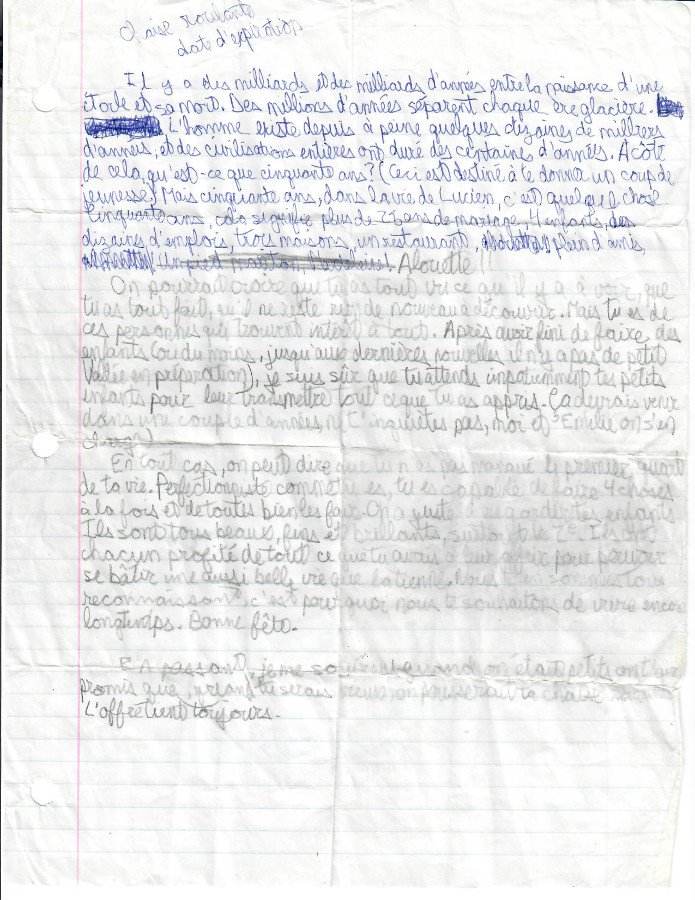 Chaise roulante
date d'expiration
Il y a des milliards et des milliards d'années entre la naissance d'une
étoile et sa mort. Des millions d'années séparent chaque ère glacière.
L'homme existe depuis à peine quelques dizaines de milliers
d'années, et des civilisations entières ont duré des centaines d'années. À côté
de cela, qu'est-ce que cinquante ans? (Ceci est destiné à te donner un coup de
jeunesse) Mais cinquante ans, dans la vie de Lucien, c'est quelque chose
Cinquante ans, cela signifie plus de 25 ans de mariage, 4 enfants, des
dizaines d'emplois, trois maisons, un restaurant, plein d'amis,
Alouette!!
On pourrait croire que tu as tout vu ce qu'il y a à voir, que
tu as tout fait, qu'il ne reste rien de nouveau à découvrir. Mais tu es de
ces personnes qui trouvent intérêt à tout. Après avoir fini de faire des
enfants (ou du moins, jusqu'aux dernières nouvelles il n'y a pas de petit
Vallée en préparation), je suis sûr que tu attends impatiemment tes petits
enfants pour leur transmettre tout ce que tu as appris. Ça devrais venir
dans une couple d'années, ne t'inquiètes pas, moi et Émilie on s'en
charge)
En tout cas, on peut dire que tu n'as pas manqué le premier quart
de ta vie. Perfectionniste comme tu es, tu es capable de faire 4 choses
à la fois et de toutes bien les faire. On a juste à regarder tes enfants
Ils sont tous beaux, fins et brillants, surtout le 2e. Ils ont
chacun profité de tout ce que tu avais à leur pour pouvoir
se bâtir une aussi belle vie que la tienne. Nous t'en sommes tous
reconnaissant, c'est pourquoi nous te souhaitons de vivre encore
longtemps. Bonne fête.
En passant, je me souviens quand on était petits on t'
promis que, quand tu serais vieux, on pousserait ta chaise
L'offre tient toujours.